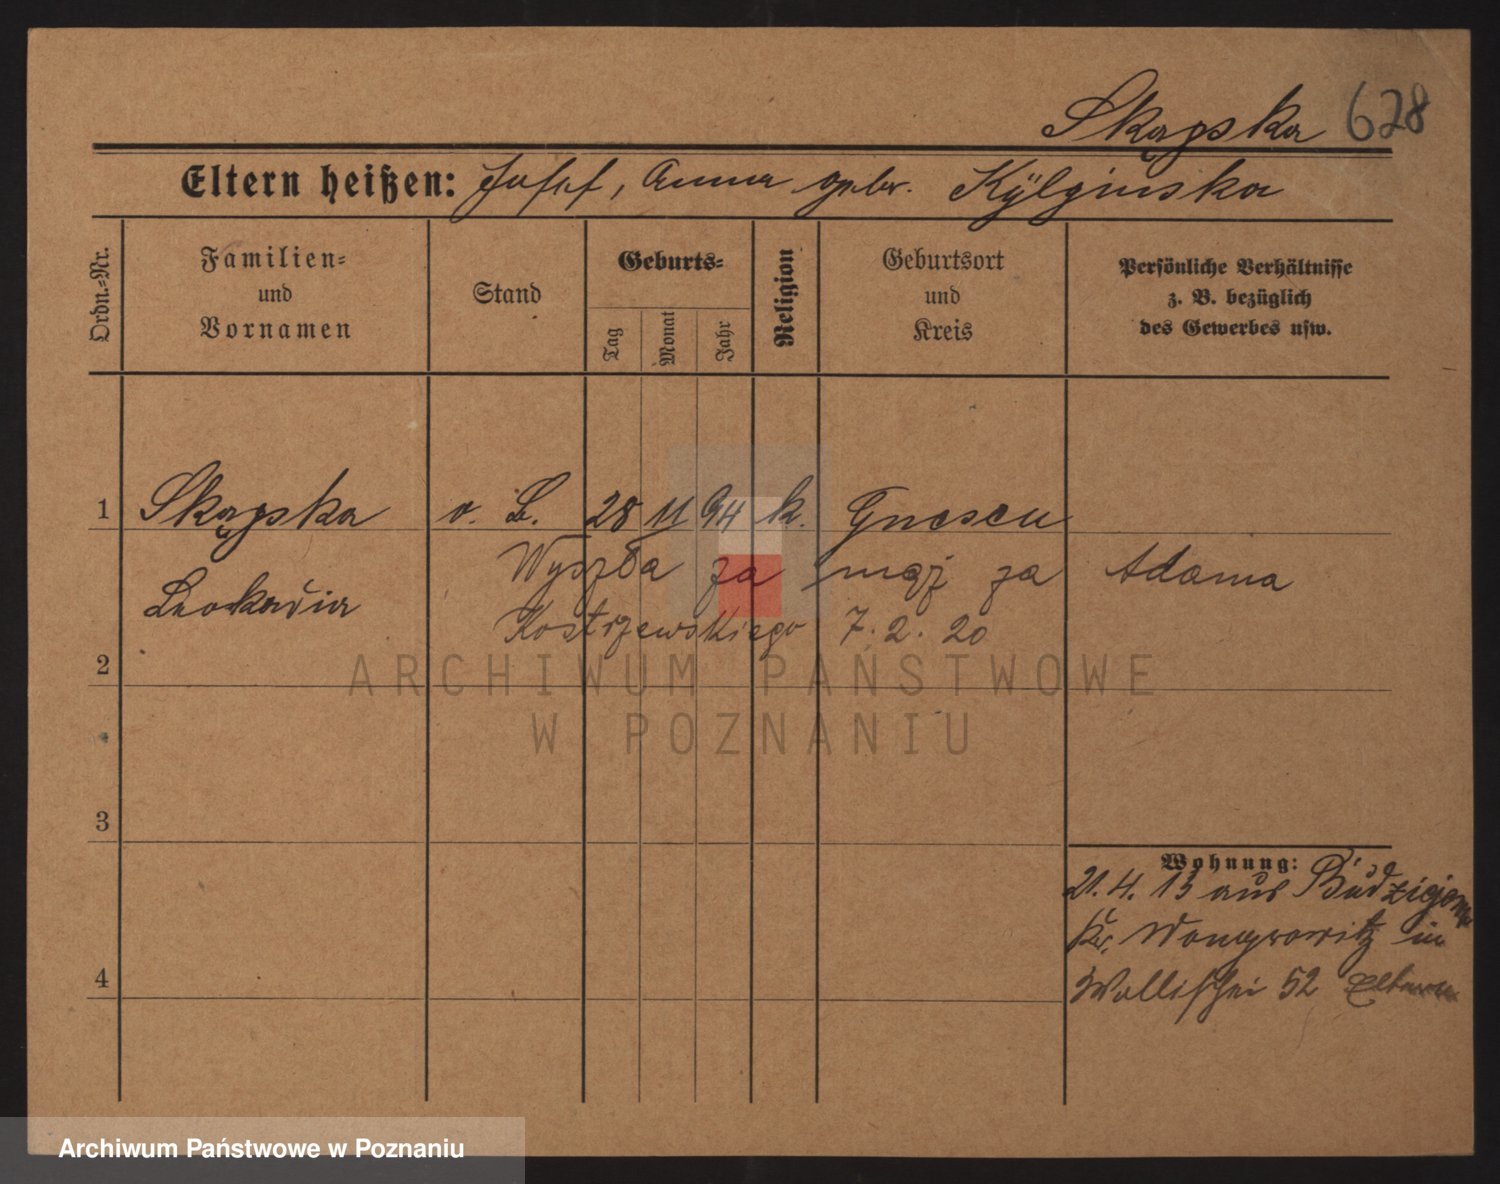 Skąpska 628
Eltern heißen: Josef, Anna gebr. Kÿlginska
Ordn.-Nr.
Familien-
und
Vornamen
Stand
Geburts-
Tag
Monat
Jahr
Religion
Geburtsort
und
Kreis
Persönliche Verhältnisse
z. B. bezüglich
des Gewerbes usw.
1 Skąpska o. B. 28 11 94 k. Gnesen
Wyszła za mąż za Adama
Leokadia
Kostrzewskiego 7.2.20
2
ARCHIWUM PAŃSTWOWE
W POZNANIU
3
Wohnung:
21.4.13 aus
Kr. Wongrowitz in
4
Wallischei 52 Eltern
Archiwum Państwowe w Poznaniu